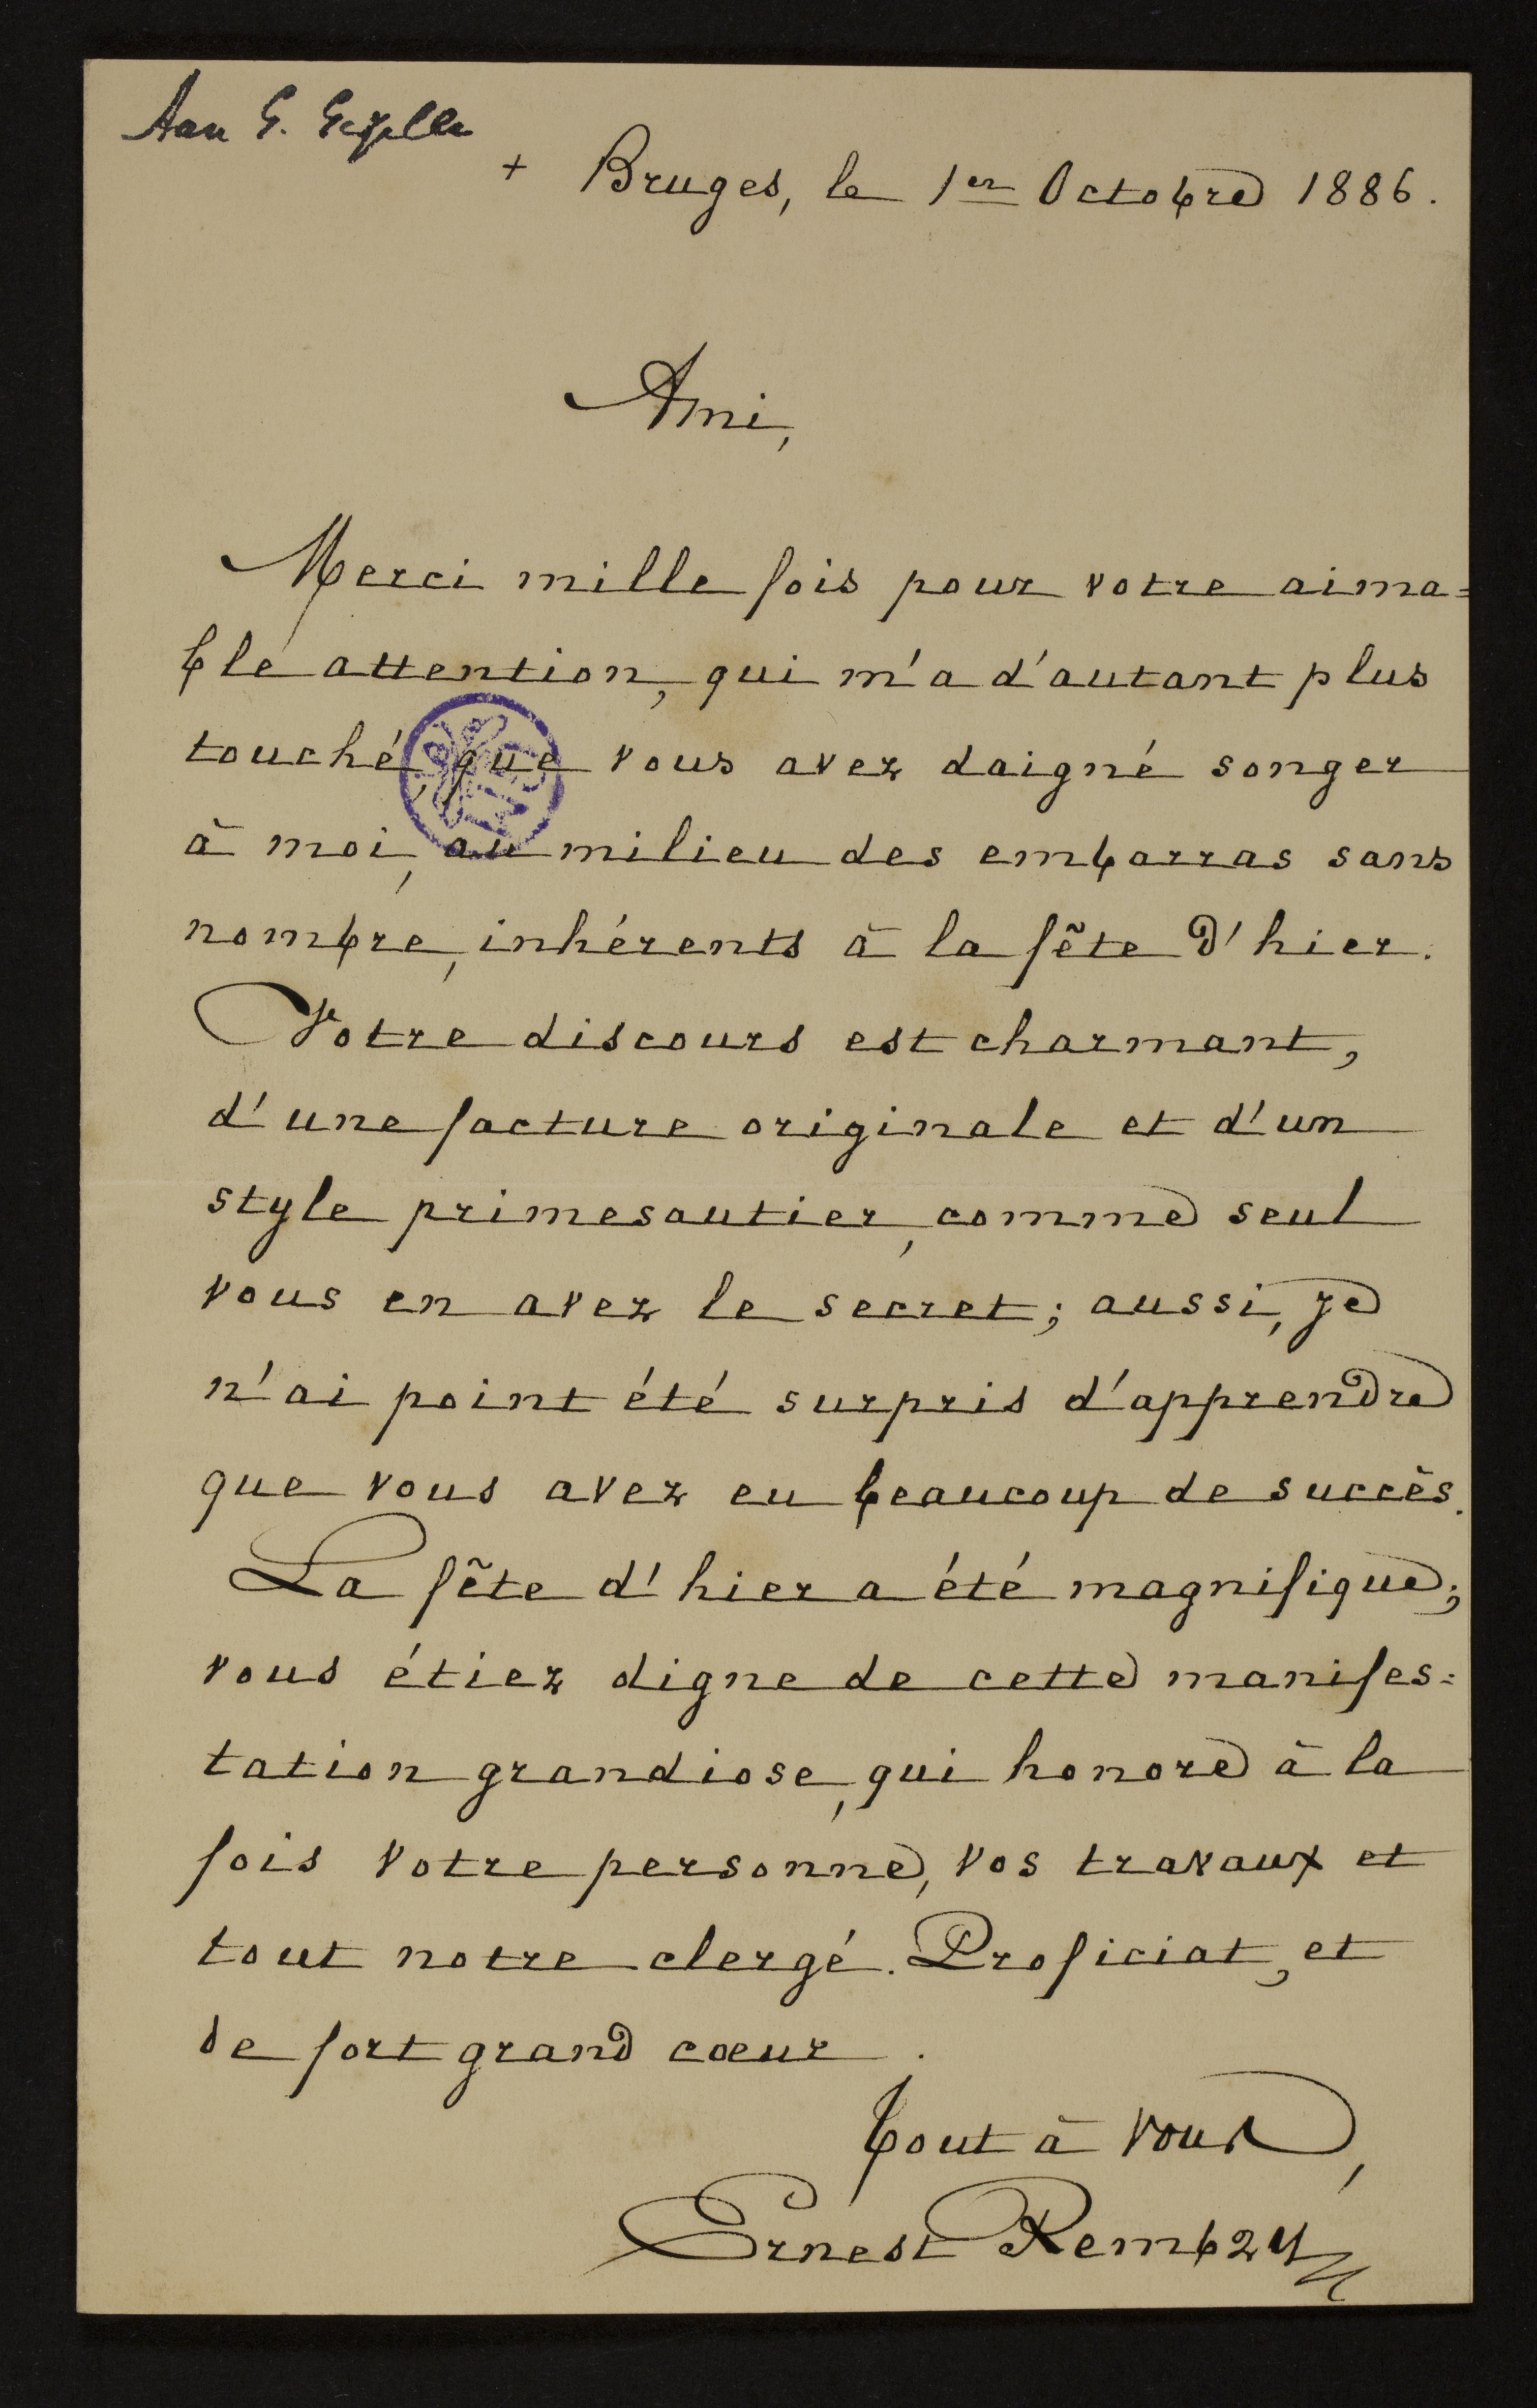 Aan G. Gezelle
+ Bruges, le 1er Octobre 1886.
Ami,
Merci mille fois pour votre aima=
ble attention, qui m'a d'autant plus
touché, que vous avez daigné songer
à moi, au milieu des embarras sans
nombre, inhérents à la fête d'hier.
Votre discours est charmant,
d'une facture originale et d'un
style primesautier, comme seul
vous en avez le secret; aussi, je
n'ai point été surpris d'apprendre
que vous avez eu beaucoup de succès.
La fête d'hier a été magnifique;
vous étiez digne de cette manifes=
tation grandiose, qui honore à la
fois votre personne, vos travaux et
tout notre clergé. Proficiat, et
de fort grand cœur.
Tout à vous,
Ernest Rembry